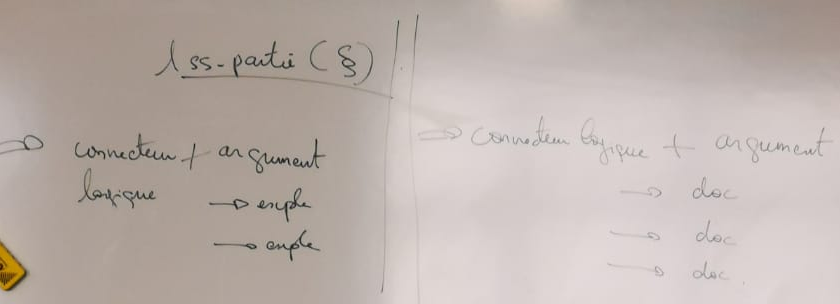 1 ss-partie (§)
connecteur + argument
logique → exple
→ exple
→ connecteur logique + argument
→ doc
→ doc
→ doc.